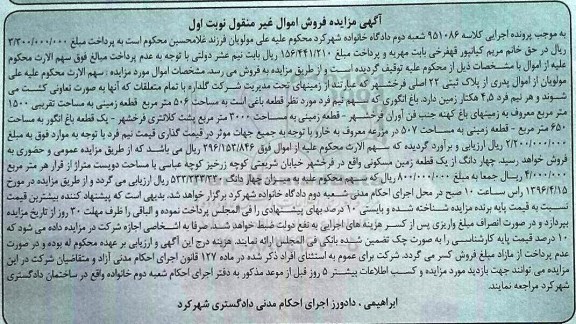 آگهی مزایده فروش اموال غیر منقول نوبت اول
به موجب پرونده اجرایی کلاسه ۹۵۱۰۸۶ شعبه دوم دادگاه خانواده شهرکرد محکوم علیه علی مولویان فرزند غلامحسین محکوم است به پرداخت مبلغ ۳/۳۰۰/۰۰۰/۰۰۰
ریال در حق خانم مریم کیانپور قهفرخی بابت مهریه و پرداخت مبلغ ۱۵۶/۴۴۱/۲۱۰ ریال بابت نیم عشر دولتی با توجه به عدم پرداخت مبالغ فوق سهم الارث محکوم
علیه از اموال با مشخصات ذیل از محکوم علیه توقیف گردیده است و از طریق مزایده به فروش می رسد. مشخصات اموال مورد مزایده : سهم الارث محکوم علیه علی
مولویان از اموال پدری از پلاک ثبتی ۲۲ اصلی فرخشهر که عبارتند از زمینهای تحت مدیریت شرکت گلداره با تمام متعلقات که آنها به صورت تعاونی کشت می
شوند و هر نیم فرد ۴،۵ هکتار زمین دارد. باغ انگوری که سهم نیم فرد مورد نظر قطعه باغی است به مساحت ۵۰۶ متر مربع قطعه زمینی به مساحت تقریبی ۱۵۰۰
متر مربع معروف به زمینهای باغ کهنه جنب فن آوران فرخشهر - قطعه زمینی به مساحت ۳۰۰۰ متر مربع پشت کلانتری فرخشهر - یک قطعه باغ انگور به مساحت
۶۵۰ متر مربع - قطعه زمینی به مساحت ۵۰۷ در مزرعه معروف به خارو با توجه به جمیع جهات موثر در قیمت گذاری قیمت نیم فرد با توجه به موارد فوق به مبلغ
۲/۲۰۰/۰۰۰/۰۰۰ ریال ارزیابی و برآورد گردیده که سهم الارث محکوم علیه از اموال فوق ۲۹۶/۱۵۳/۸۴۶ ریال می باشد که از طریق مزایده عمومی و حضوری به
فروش خواهد رسید. چهار دانگ از یک قطعه زمین مسکونی واقع در فرخشهر خیابان شریعتی کوچه زرخیز کوچه عباسی با مساحت دویست متراژ از قرار هر متر مربع
۴/۰۰۰/۰۰۰ ریال جمعا به مبلغ ۸۰۰/۰۰۰/۰۰۰ ریال که سهم محکوم علیه به میزان چهار دانگ ۵۳۳/۳۳۳/۳۳۰ ریال ارزیابی می گردد و از طریق مزایده در مورخ
۱۳۹۶/۴/۱۵ راس ساعت ۱۰ صبح در محل اجرای احکام مدنی شعبه دوم دادگاه خانواده شهرکرد برگزار خواهد شد. بدیهی است که پیشنهاد کننده بیشترین قیمت
نسبت به قیمت پایه برنده مزایده شناخته شده و بایستی ۱۰ درصد بهای پیشنهادی را فی المجلس پرداخت نموده و الباقی را ظرف مهلت ۳۰ روز از تاریخ مزایده
بپردازد و در صورت انصراف مبلغ واریزی پس از کسر هزینه های اجرایی به نفع دولت ضبط خواهد شد. صرفا به اشخاصی اجازه شرکت در مزایده داده می شود که
۱۰ درصد قیمت پایه کارشناسی را به صورت چک تضمین شده بانکی فی المجلس ارائه نمایند. هزینه درج این آگهی و ارزیابی بر عهده محکوم له بوده و در صورت
عدم پرداخت از مازاد مبلغ فروش کسر می گردد. شرکت برای عموم به استثنای افراد ذکر شده در ماده ۱۲۷ قانون اجرای احکام مدنی آزاد و متقاضیان شرکت در این
مزایده می توانند جهت بازدید مورد مزایده و کسب اطلاعات بیشتر ۵ روز قبل از موعد مذکور به دفتر اجرای احکام شعبه دوم خانواده واقع در ساختمان دادگستری
شهرکرد مراجعه نمایند.
ابراهیمی ، دادورز اجرای احکام مدنی دادگستری شهرکرد